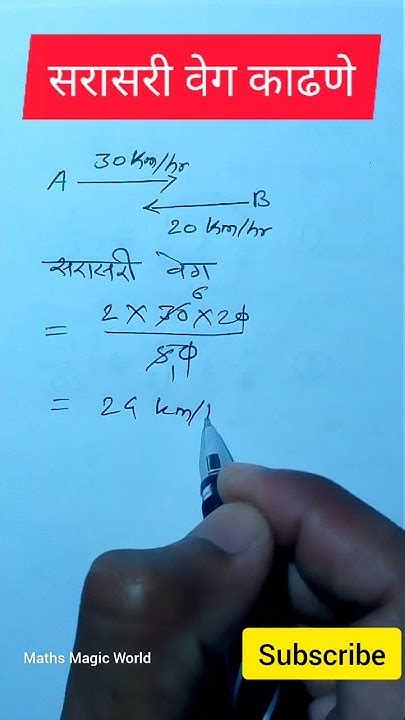 सरासरी वेग काढणे
30 km/hr
A
B
20 km/hr
सरासरी वेग
6
= 2 X 30 X 20
50
1
= 24 km/
Maths Magic World
Subscribe